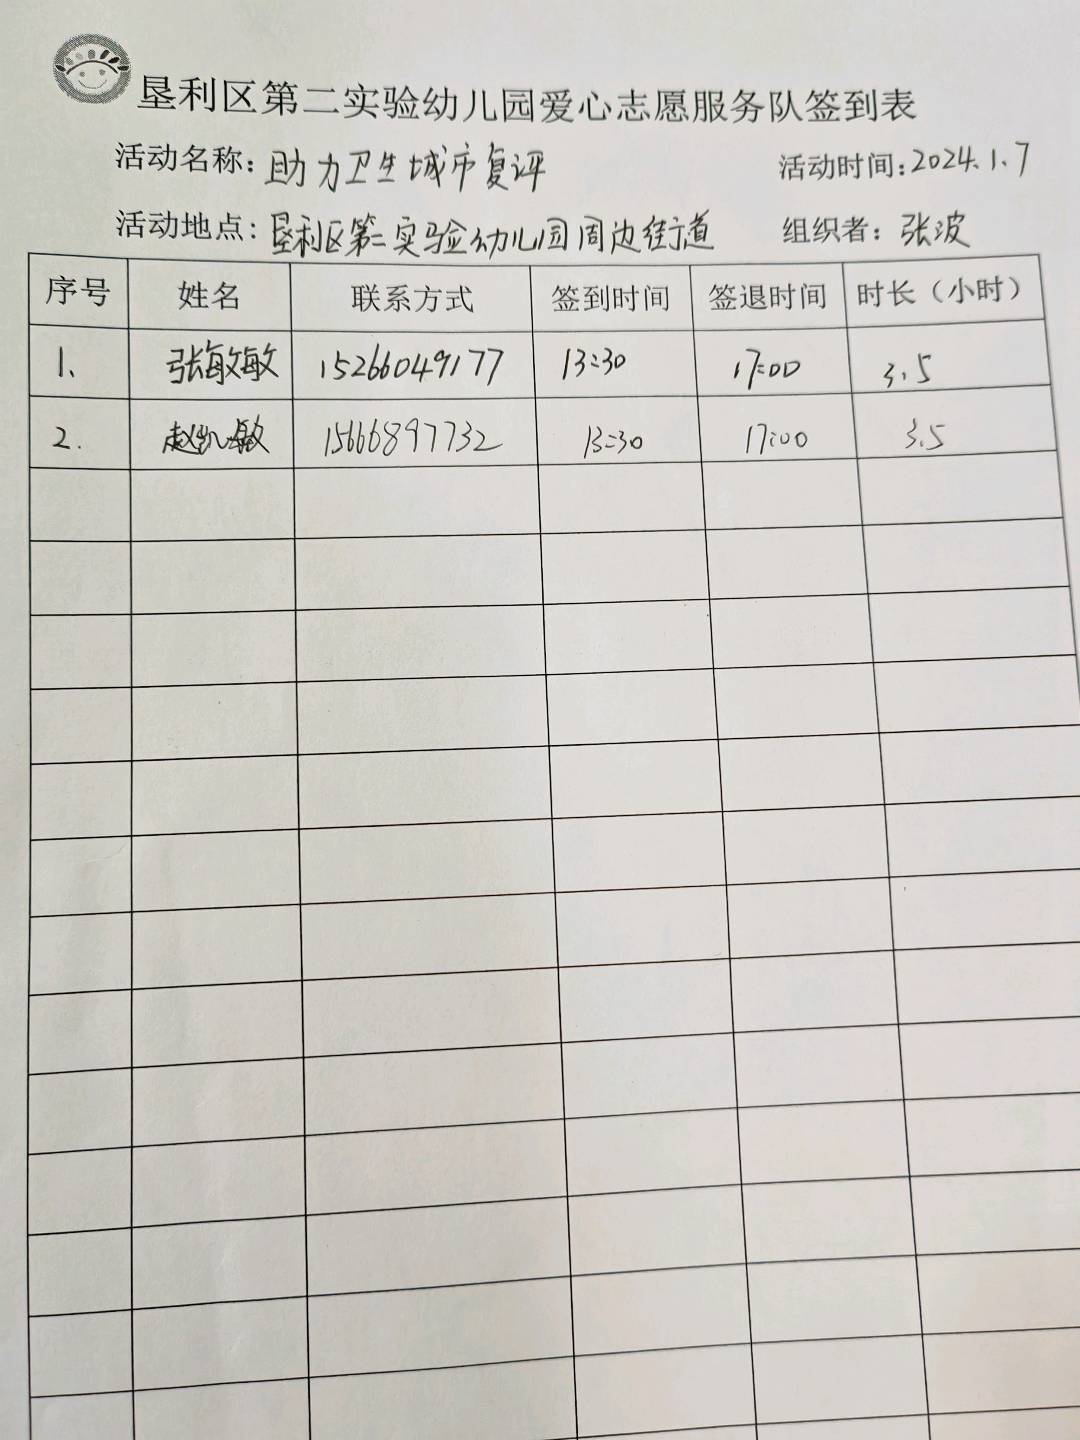 垦利区第二实验幼儿园爱心志愿服务队签到表
活动名称：助力卫生城市复评 活动时间：2024.1.7
活动地点：垦利区第二实验幼儿园周边街道 组织者：张波
序号 姓名 联系方式 签到时间 签退时间 时长（小时）
1、 张敏敏 15266049177 13:30 17:00 3.5
2. 赵凯敏 15666897732 13:30 17:00 3.5